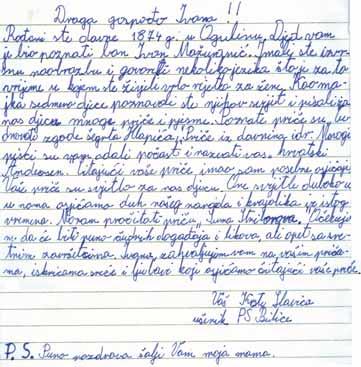 Draga gospođo Ivana !!
Rođeni ste davne 1874 g. u Ogulinu. Djed vam
je bio poznati ban Ivan Mažuranić. Imali ste izvr-
snu naobrazbu i govorili nekoliko jezika što je za to
vrijeme u kojem ste živjeli vrlo rijetko za žene. Kao ma-
jka sedmero djece poznavali ste njihov svijet i pisali za
nas djecu mnoge priče i pjesme. Poznate priče su, Ču
dnovate zgode šegrta Hlapića, Priče iz davnina itd. Mnogi
pisci su vam odali počast i nazvali vas hrvatski
Andersen. Čitajući vaše priče imao sam posebne osjećaje.
Vaše priče su svjetlo za nas djecu. One svijetle duboko u
u nama osjećamo duh našeg naroda i krajolika iz istog
vremena. Moram pročitati priču, Šuma Striborova. Očekuje
m da će biti puno čudnih događaja i likova, ali opet sa sre-
tnim završetcima. Ivana, zahvaljujem vam na vašim priča-
ma, iskricama sreće i ljubavi koju osjećamo čitajući vaše priče.
Vaš Slavica
učenik PŠ Bilice
P. S. Puno pozdrava šalje Vam moja mama.